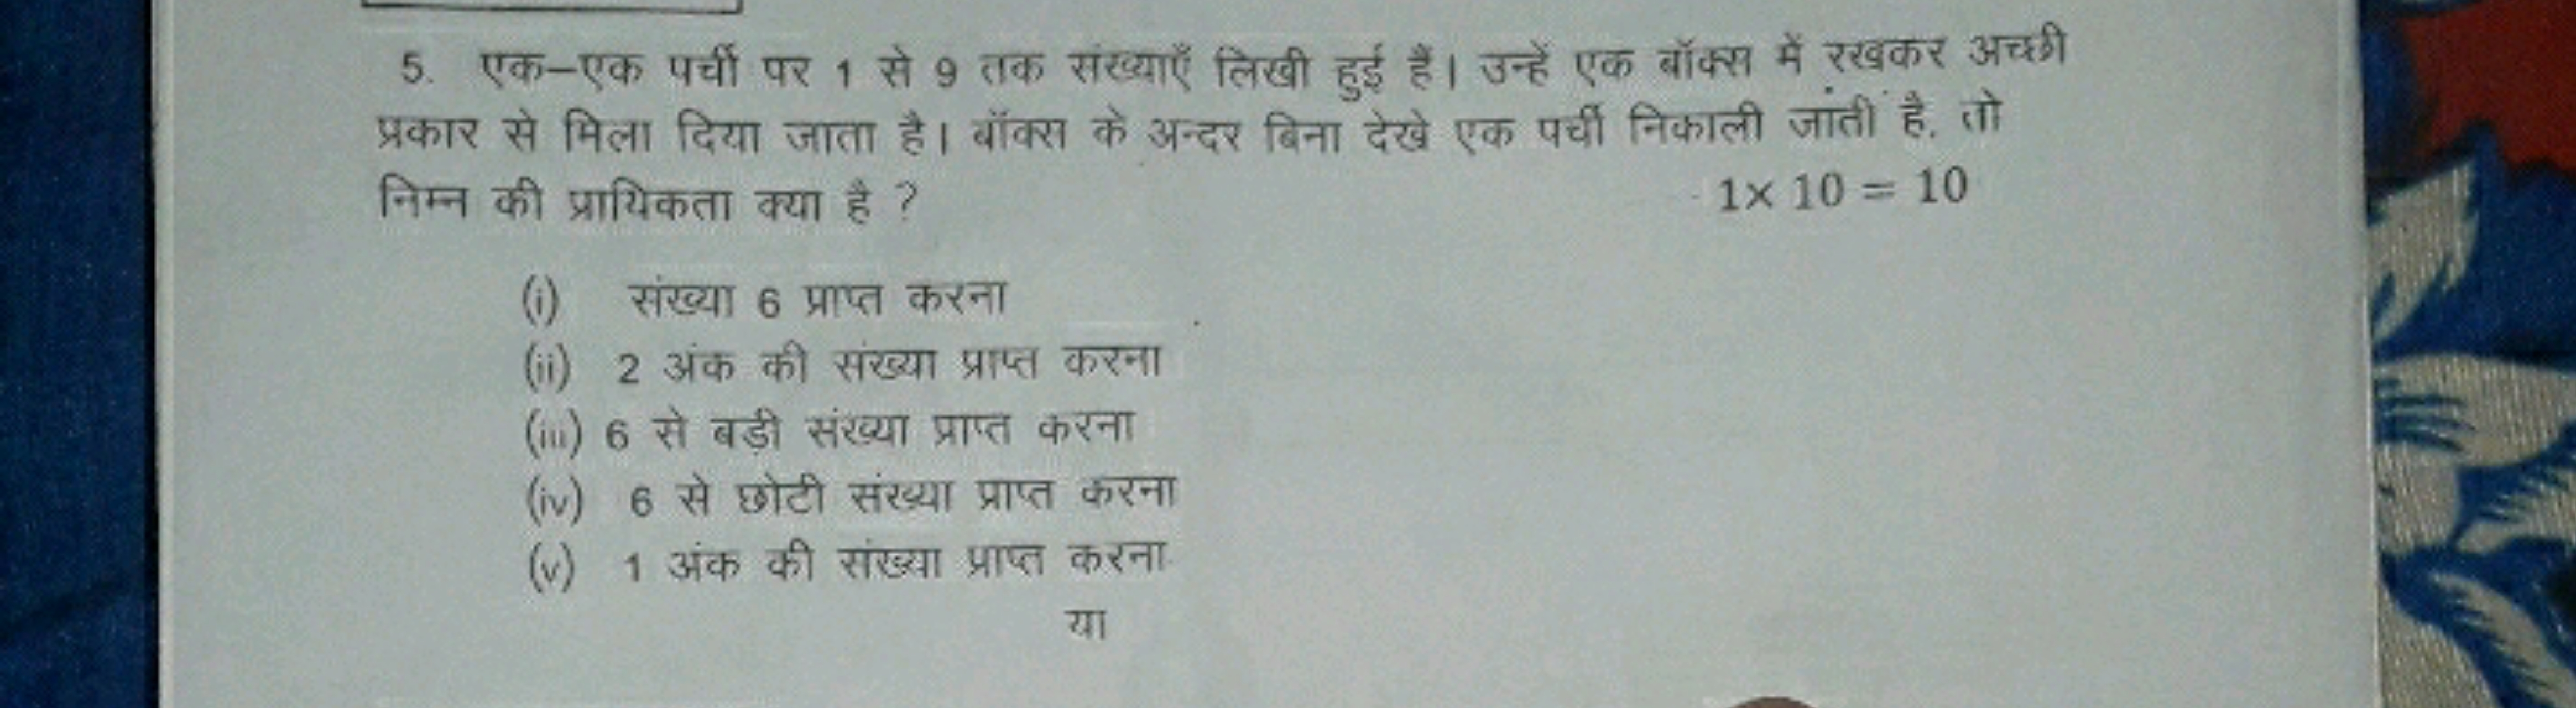 5. एक–एक पर्ची पर 1 से 9 तक संख्याएँ लिखी हुई हैं। उन्हें एक बॉक्स में रखकर अच्छी
प्रकार से मिला दिया जाता है। बॉक्स के अन्दर बिना देखे एक पर्ची निकाली जाती है, तो
निम्न की प्रायिकता क्या है ? 1× 10 = 10
(i) संख्या 6 प्राप्त करना
(ii) 2 अंक की संख्या प्राप्त करना
(iii) 6 से बड़ी संख्या प्राप्त करना
(iv) 6 से छोटी संख्या प्राप्त करना
(v) 1 अंक की संख्या प्राप्त करना
या